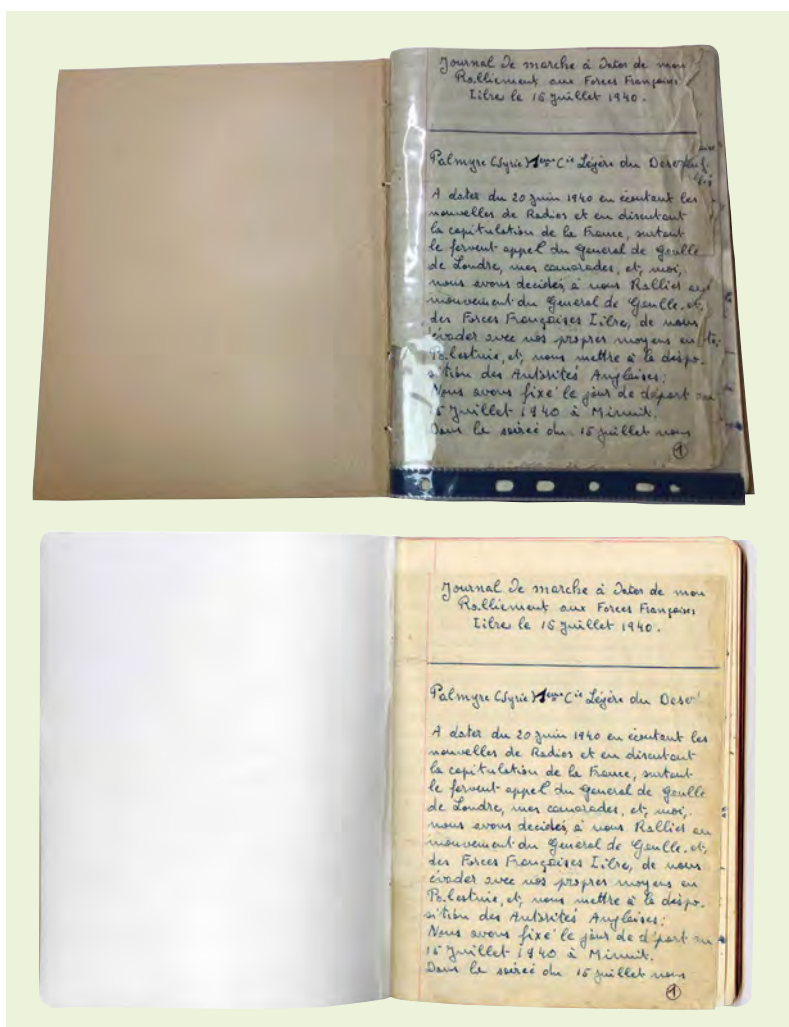 Journal de marche à Dater de mon
Ralliement aux Forces Françaises
Libre le 15 Juillet 1940.
Palmyre (Syrie) 1ère Cie Légère du Desert
A dater du 20 Juin 1940 en écoutant les
nouvelles de Radios et en discutant
la capitulation de la France, surtout
le fervent appel du General de Gaulle
de Londre, mes camarades, et, moi,
nous avons decidés, à nous Rallies au
mouvement du General de Gaulle. et,
des Forces Françaises Libre, de nous
évader avec nos propres moyens en
Palestine, et, nous mettre à la dispo-
sition des Autorités Anglaises:
Nous avons fixé le jour de départ au
15 Juillet 1940 à Minuit.
Dans la soireé du 15 juillet nous
1
Journal de marche à Dater de mon
Ralliement aux Forces Françaises
Libre le 15 Juillet 1940.
Palmyre (Syrie) 1ère Cie Légère du Deser
A dater du 20 Juin 1940 en écoutant les
nouvelles de Radios et en discutant
la capitulation de la France, surtout
le fervent appel du General de Gaulle
de Londre, mes camarades, et, moi,
nous avons decidés, à nous Rallies au
mouvement du General de Gaulle. et,
des Forces Françaises Libre, de nous
évader avec nos propres moyens en
Palestine, et, nous mettre à la dispo-
sition des Autorités Anglaises:
Nous avons fixé le jour de départ au
15 Juillet 1940 à Minuit.
Dans la soireé du 15 juillet nous
1